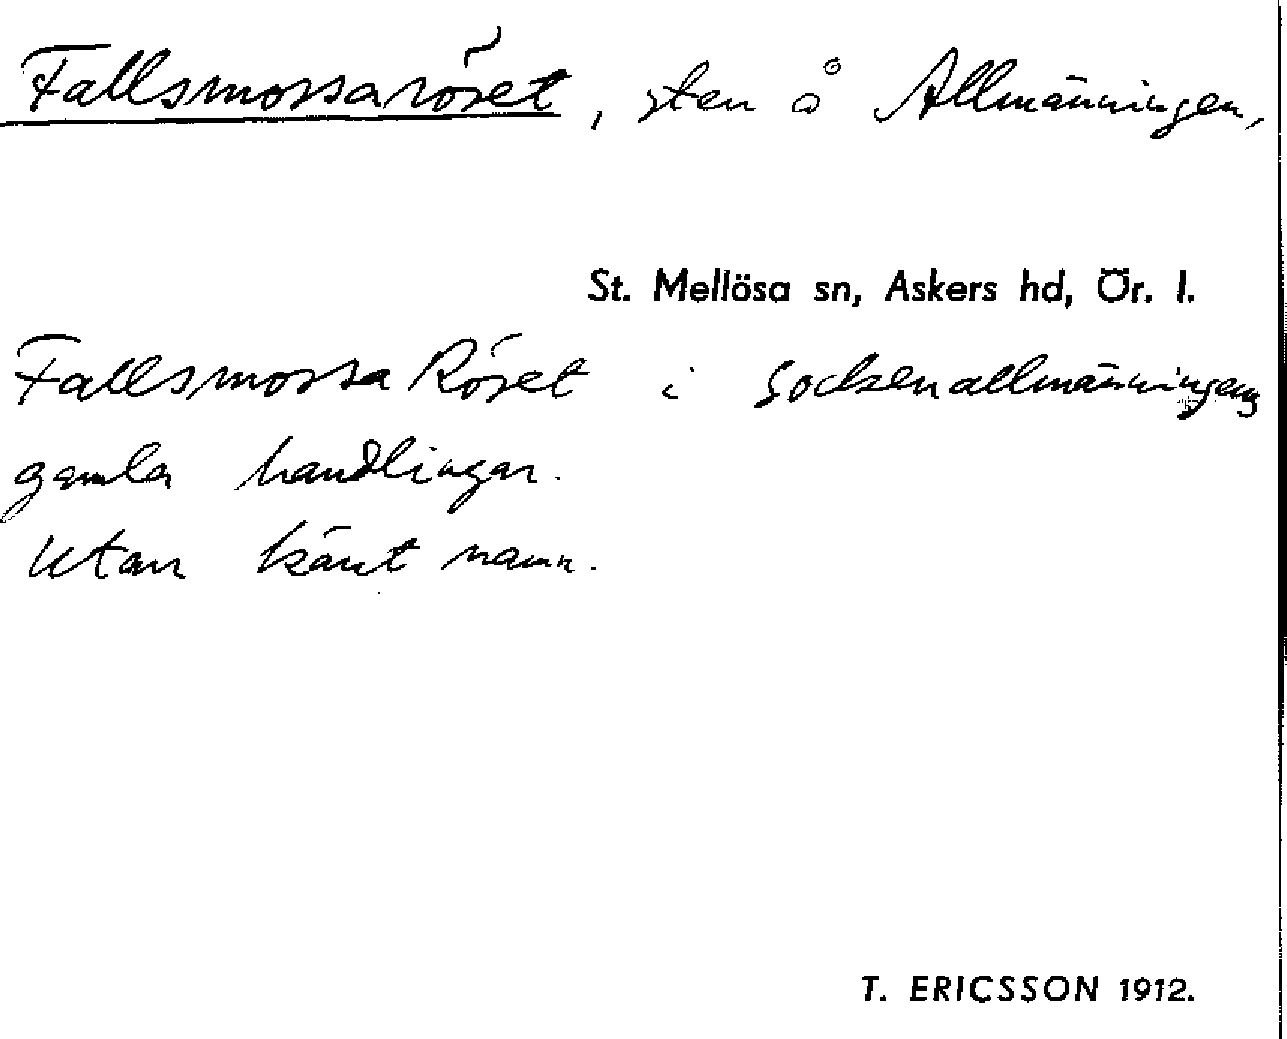 Fallsmossaröset, sten å Allmänningen,
St. Mellösa sn, Askers hd, Ör. l.
Fallsmossa Röset i sockenallmänningens
gamla handlingar.
Utan känt namn.
T. ERICSSON 1912.